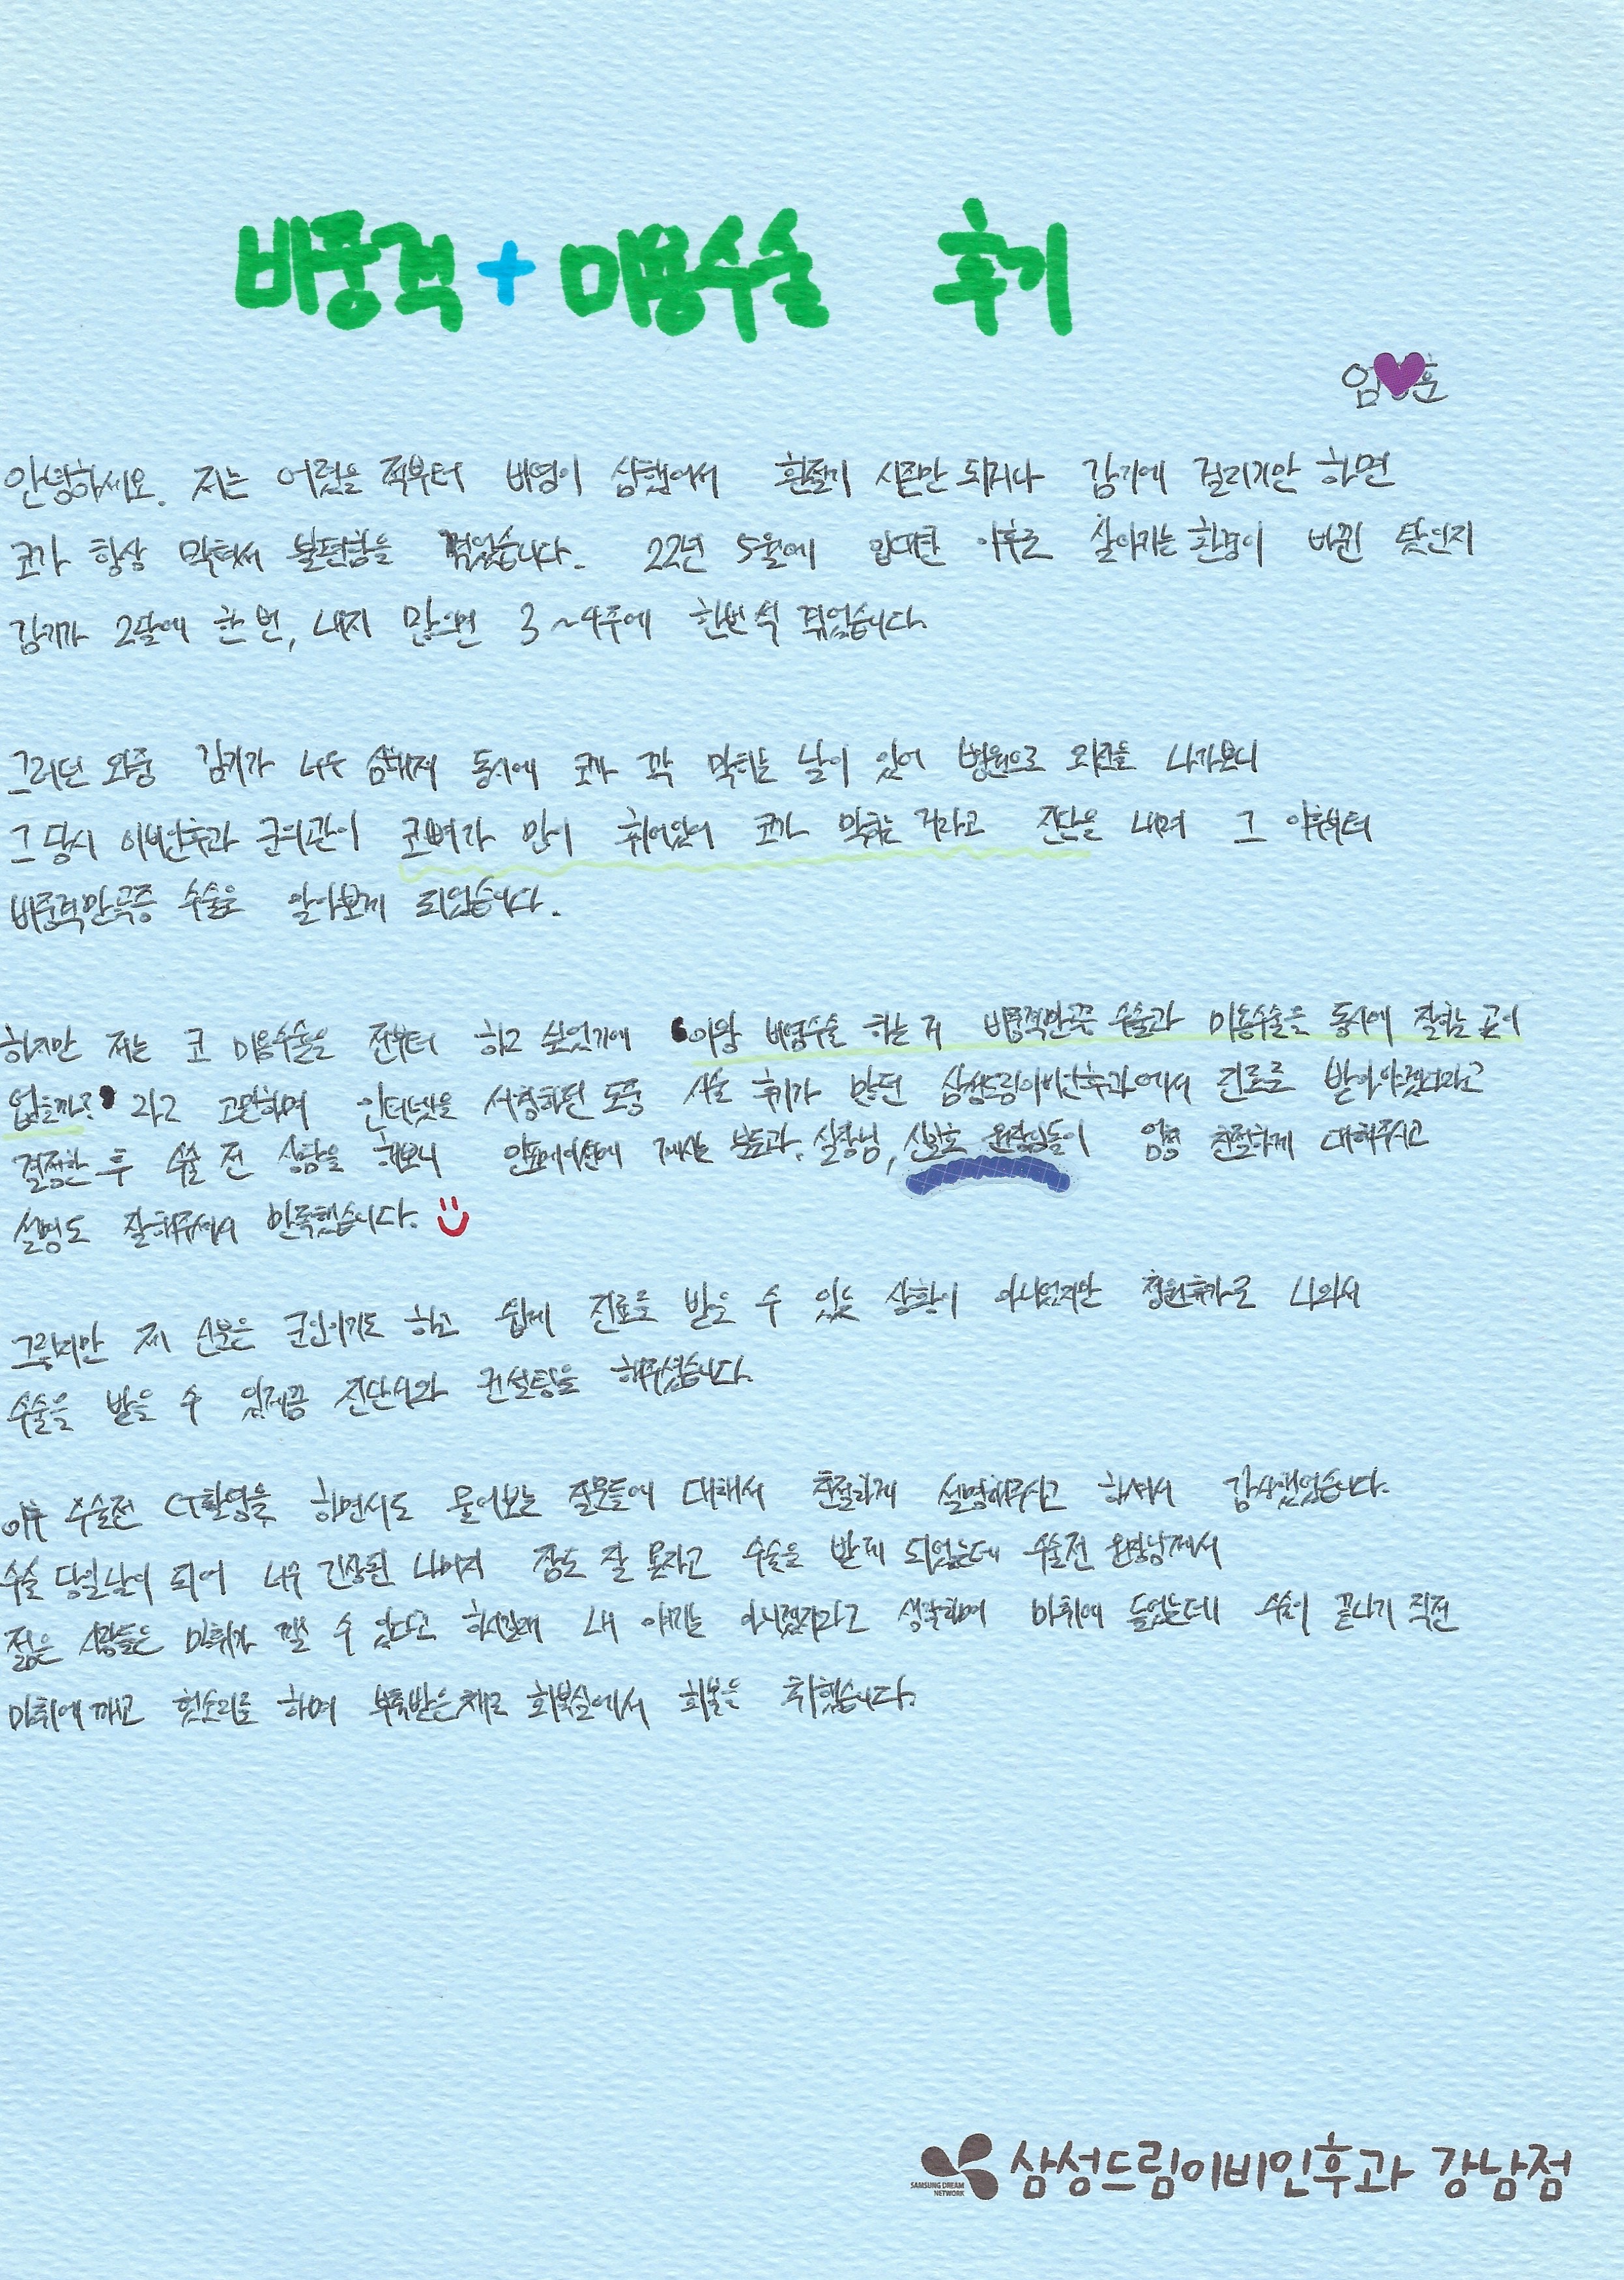 비중격+미용수술 후기
엄 훈
안녕하세요. 저는 어렸을 적부터 비염이 심했어서 환절기 시즌만 되거나 감기에 걸리기만 하면
코가 항상 막혀서 불편함을 겪었습니다. 22년 5월에 입대한 이후로 살아가는 환경이 바뀐 탓인지
감기가 2달에 한 번, 내지 많으면 3~4주에 한번씩 겪었습니다.
그러던 와중 감기가 너무 심해져 동시에 코가 꽉 막히는 날이 있어 병원으로 외진을 나가보니
그 당시 이비인후과 군의관이 코뼈가 많이 휘어있어 코가 막히는 거라고 진단을 내려 그 이후부터
비중격만곡증 수술을 알아보게 되었습니다.
하지만 저는 코 미용수술을 전부터 하고 싶었기에 '이왕 비염수술 하는 거 비중격만곡증 수술과 미용수술을 동시에 잘하는 곳이
없을까?' 라고 고민하며 인터넷을 서칭하던 도중 시술 후기가 많던 삼성드림이비인후과에서 진료를 받아야겠다라고
결정한 후 수술 전 상담을 해보니 인포메이션에 계시는 분들과, 실장님, 원장님들이 엄청 친절하게 대해주시고
설명도 잘해주셔서 만족했습니다.
그렇지만 제 신분은 군인이기도 하고 쉽게 진료를 받을 수 있는 상황이 아니었지만 청원휴가로 나와서
수술을 받을 수 있게끔 진단서와 컨설팅을 해주셨습니다.
이후 수술전 CT촬영을 하면서도 물어보는 질문들에 대해서 친절하게 설명해주시고 하셔서 감사했었습니다.
수술 당일날이 되어 너무 긴장된 나머지 잠도 잘 못자고 수술을 받게 되었는데 수술전 원장님께서
젊은 사람들은 마취가 깰 수 있다고 하시길래 내 얘기는 아니겠지라고 생각하며 마취에 들었는데 수술이 끝나기 직전
마취에 깨고 헛소리를 하며 부축받은채로 회복실에서 회복을 취했습니다.
SAMSUNG DREAM
NETWORK
삼성드림이비인후과 강남점